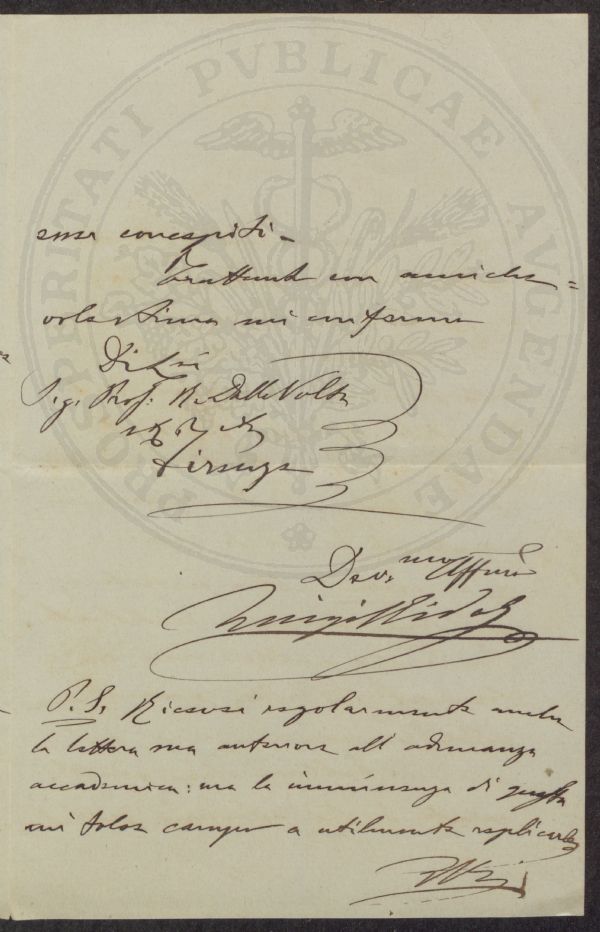 PROSPERITATI PVBLICAE AVGENDAE
esser concepiti -
Frattanto con amiche=
volestima mi confermo
Di Lei
Sig. Prof. R. Dalla Volta
Firenze
Dev.mo Affmo
Luigi Ridolfi
P.S. Ricevei regolarmente anche
la lettera sua anteriore all'adunanza
accademica: ma la imminenza di questa
mi tolse campo a utilmente replicarle